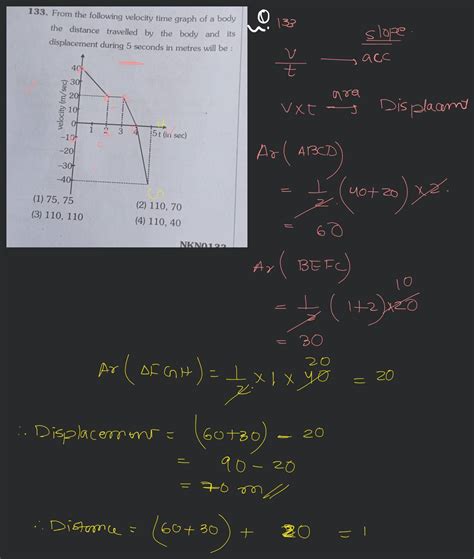 133. From the following velocity time graph of a body
the distance travelled by the body and its
displacement during 5 seconds in metres will be :
velocity (m/sec)
40
30
20
10
0
-10
-20
-30
-40
1 2 3 4 5 t (in sec)
(1) 75, 75
(2) 110, 70
(3) 110, 110
(4) 110, 40
NKN0132
Q. 133
slope
v/t → acc
v×t area → Displacemt
Ar ( ABCD)
= 1/2 (40+20) ×2
= 60
Ar ( BEFC)
10
= 1/2 (1+2)×20
= 30
20
Ar ( ΔFGH) = 1/2 × 1 × 40 = 20
∴ Displacement = (60+30) - 20
= 90 - 20
= 70 m//
∴ Distance = (60+30) + 20 = 1